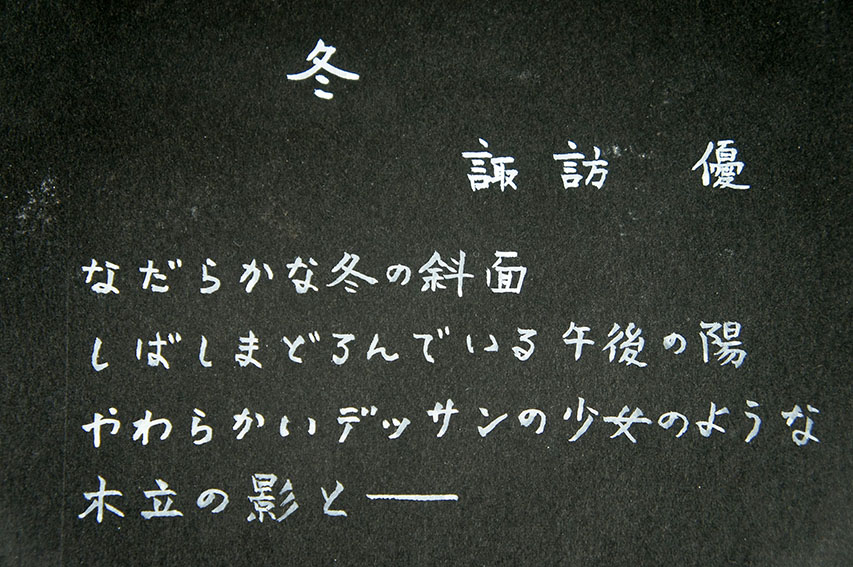 冬
諏訪 優
なだらかな冬の斜面
しばしまどろんでいる午後の陽
やわらかいデッサンの少女のような
木立の影と──